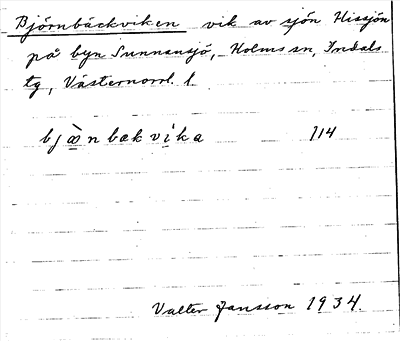 Björnbäckviken vik av sjön Hissjön
på byn Sunnansjö, Holms sn, Indals
tg, Västernorrl. l.
bjæ̀nbækvíka 114
Valter Jansson 1934.